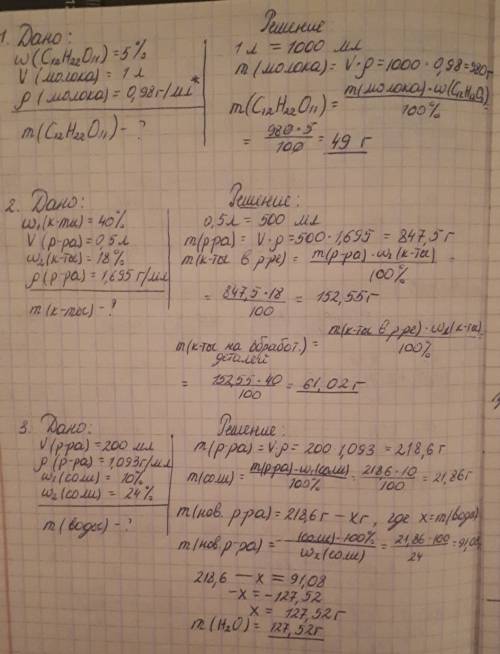 1. Дано:
w(C12H22O11) = 5%
V (молока) = 1 л
ρ (молока) = 0,98 г/мл*
m(C12H22O11) - ?
Решение
1 л = 1000 мл
m (молока) = V·ρ = 1000 · 0,98 = 980 г
m(C12H22O11) = m(молока)·w(C12H22O11) / 100%
= 980·5 / 100 = 49 г
2. Дано:
w1(к-ты) = 40%
V (р-ра) = 0,5 л
w2(к-ты) = 18%
ρ (р-ра) = 1,695 г/мл
m (к-ты) - ?
Решение:
0,5 л = 500 мл
m(р-ра) = V·ρ = 500·1,695 = 847,5 г
m(к-ты в р-ре) = m(р-ра)·w2(к-ты) / 100% =
= 847,5·18 / 100 = 152,55 г
m(к-ты на обработ. деталей) = m(к-ты в р-ре)·w1(к-ты) / 100%
= 152,55·40 / 100 = 61,02 г
3. Дано:
V (р-ра) = 200 мл
ρ (р-ра) = 1,093 г/мл
w1 (соли) = 10%
w2 (соли) = 24%
m (воды) - ?
Решение:
m (р-ра) = V·ρ = 200 1,093 = 218,6 г
m(соли) = m(р-ра)·w1(соли) / 100% = 218,6·10 / 100 = 21,86 г
m (нов. р-ра) = 218,6 г - x г, где x = m(воды)
m (нов. р-ра) = (соли)·100% / w2(соли) = 21,86·100 / 24 = 91,08
218,6 - x = 91,08
-x = -127,52
x = 127,52 г
m (H2O) = 127,52 г